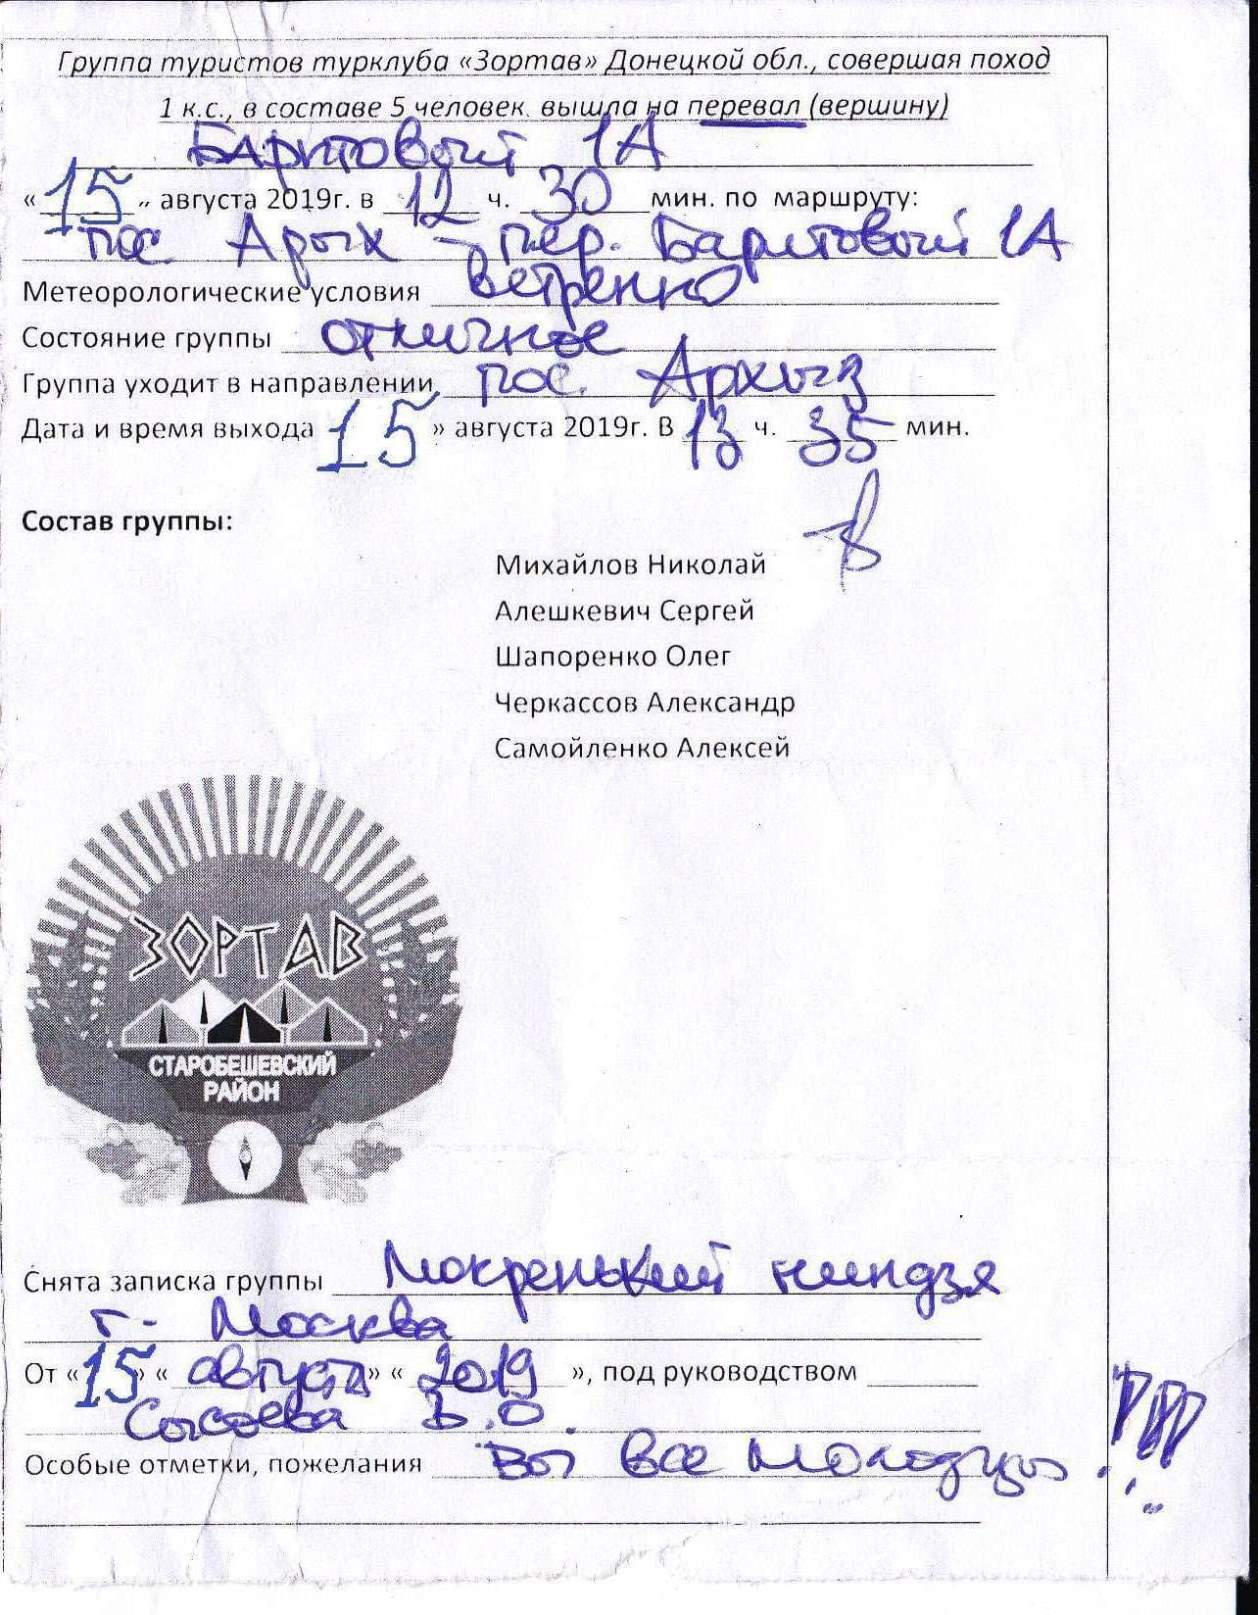 Группа туристов турклуба «Зортав» Донецкой обл., совершая поход
1 к.с., в составе 5 человек, вышла на перевал (вершину)
Баритовый 1А
«15» августа 2019г. в 12 ч. 30 мин. по маршруту:
пос. Архыз – пер. Баритовый 1А
Метеорологические условия ветренно
Состояние группы отличное
Группа уходит в направлении пос. Архыз
Дата и время выхода 15» августа 2019г. В 13 ч. 35 мин.
Состав группы:
Михайлов Николай
Алешкевич Сергей
Шапоренко Олег
Черкассов Александр
Самойленко Алексей
ЗОРТАВ
СТАРОБЕШЕВСКИЙ
РАЙОН
Снята записка группы Мокренький ниндзя
г. Москва
От «15» «августа» «2019», под руководством
Сысоева Б.О.
Особые отметки, пожелания Вы все молодцы!!!